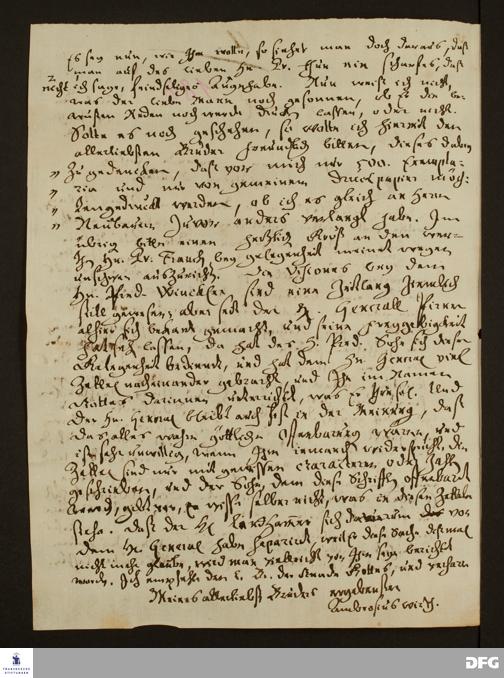 Es sey nun, wie Ihm wolle, so siehet man doch daraus, daß
man auf des lieben Hn. Dr. Thun ein scharfes, daß
nicht ich sage, feindseliges Auge habe. Nun weiß ich nicht,
was der liebe Mann noch gesonnen, ob er die be-
wusten Reden noch werde drucken lassen, oder nicht.
Solte es noch geschehen, so wolte ich hiermit den
allerliebsten Bruder freundlich bitten, dieses dabey
" zu gedencken, daß vor mich nur 500. Exempla-
" ria und nur von gemeinem Druckpapier möch-
" ten gedruckt werden, ob ich es gleich an Herrn
" Neubauer zuvor anders verlangt habe. Im
übrig bitte einen hertzlich Gruß an den
Hn. Dr. Franck bey gelegenheit meinet wegen
unschwer auszurichten. Die Visiones bey dem
Hn. Pfed. Wincklern sind eine Zeitlang ziemlich
still gewesen, aber seit der H. Generall
allhie sich bekant gemacht, und seine freygebigkeit
lassen, da hat des H. Pred. Sohn sich dieser
Gelegenheit bedienet, und hat dem Hn. General viel
Zettel nacheinander gebracht und Ihn im Namen
Gottes darinnen unterrichtet, was er thun sol. Und
der Hn. General bleibt auch fest in der Meinung, daß
das alles wahre göttliche Offenbarung waren, und
ist sehr unwillig, wenn Ihm iemand widerspricht. Die
Zettel sind nur mit gewissen characteren, oder Zahlen
geschrieben, und der Sohn, dem diese Schrifften offenbart
werd, gibt vor, er wisse selber nicht, was in diesen Zetteln
stehe. Daß der H. sich darum vor
dem H. General habe separirt, weil er diese Sache
nicht mehr glaube, wird man vielleicht vor Ihm seyn berichtet
worden. Ich empfehle den l. Br. der Gnade Gottes, und verharre
Meines allerliebst Bruders ergebenster
Ambrosius Wirth.
FRANCKESCHE STIFTUNGEN
DFG